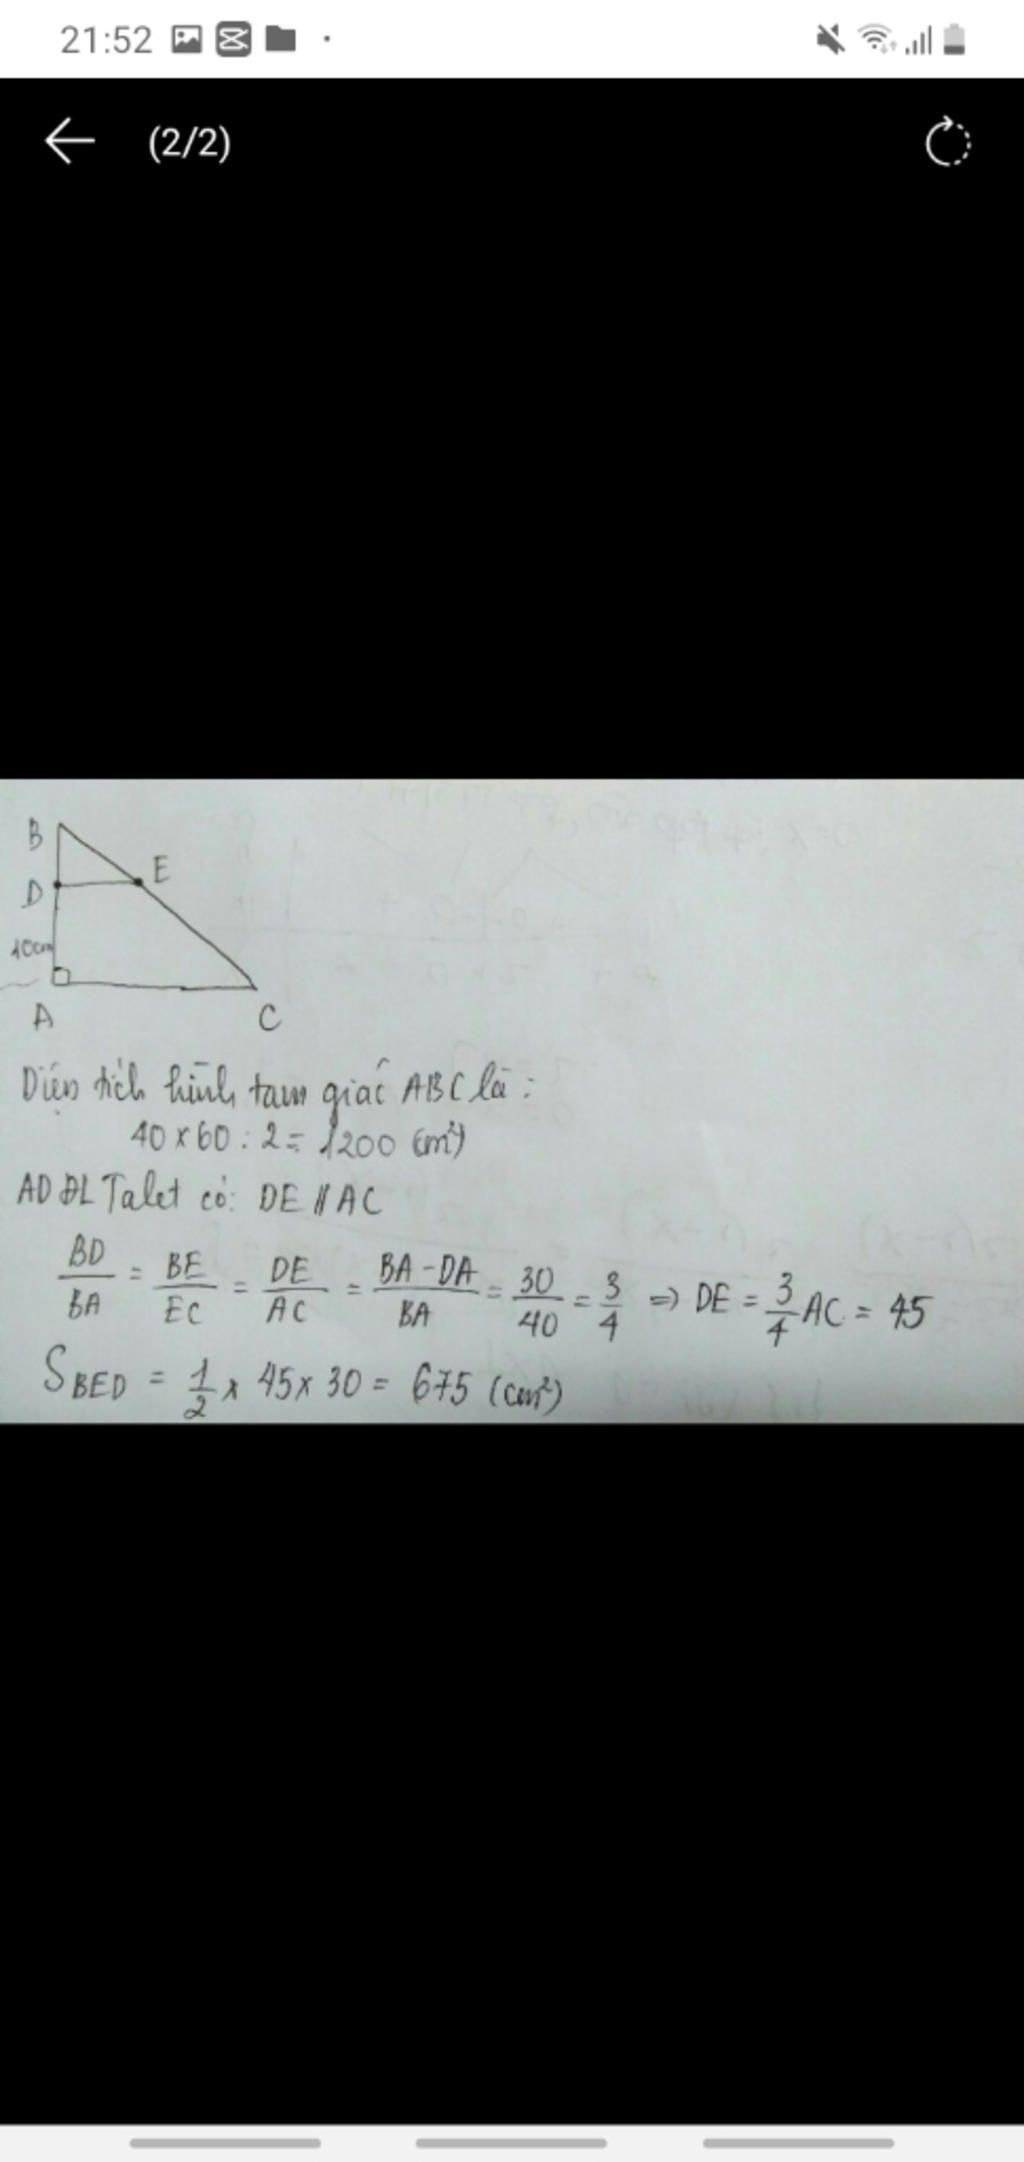 21:52
(2/2)
B
E
D
10cm
A
C
Diện tích hình tam giác ABC là :
40 x 60 : 2 = 1200 (cm²)
AD ĐL Talet có: DE // AC
BD/BA = BE/EC = DE/AC = BA - DA/BA = 30/40 = 3/4 => DE = 3/4 AC = 45
S BED = 1/2 x 45 x 30 = 675 (cm²)